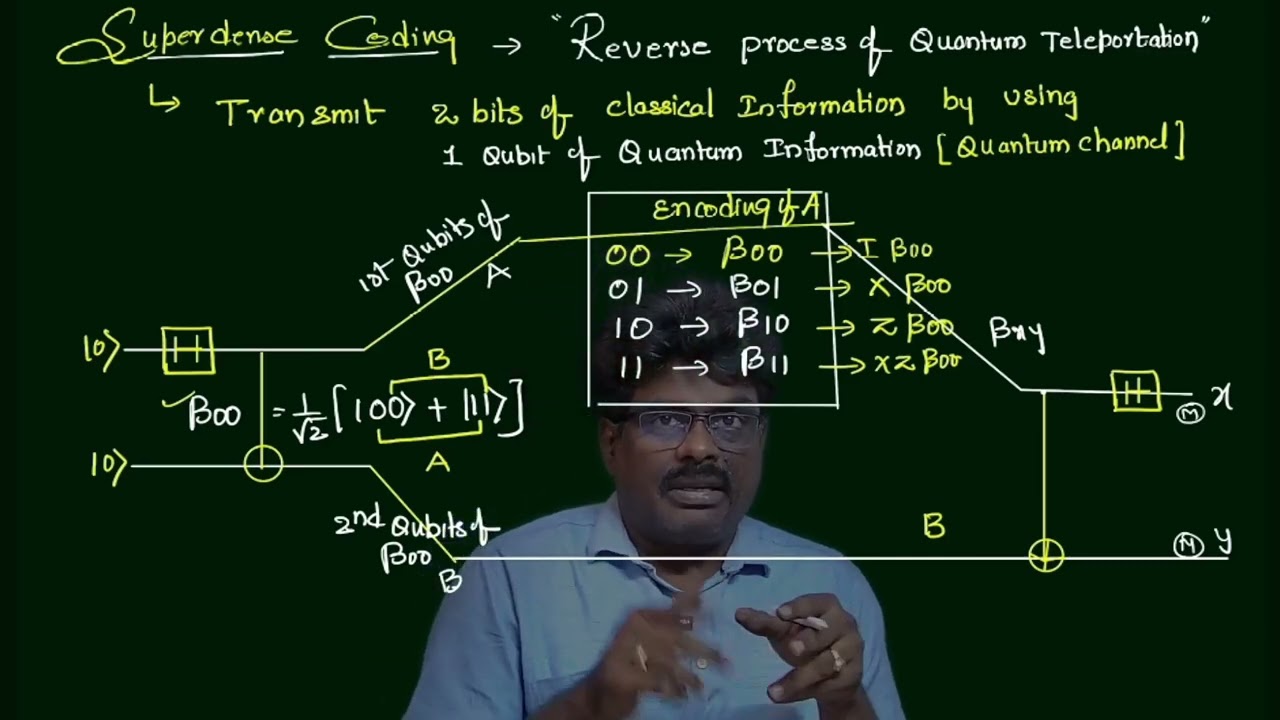 Superdense Coding → "Reverse process of Quantum Teleportation"
↳ Transmit 2 bits of classical Information by using
1 Qubit of Quantum Information [Quantum channel]
Encoding of A
00 → β00 → I β00
01 → β01 → X β00
10 → β10 → Z β00
11 → β11 → XZ β00
1st Qubits of
β00
A
|0⟩ H
βxy
H M x
B
✓β00 = 1/√2 [|00⟩ + |11⟩]
A
|0⟩
2nd Qubits of
β00
B
B
M y